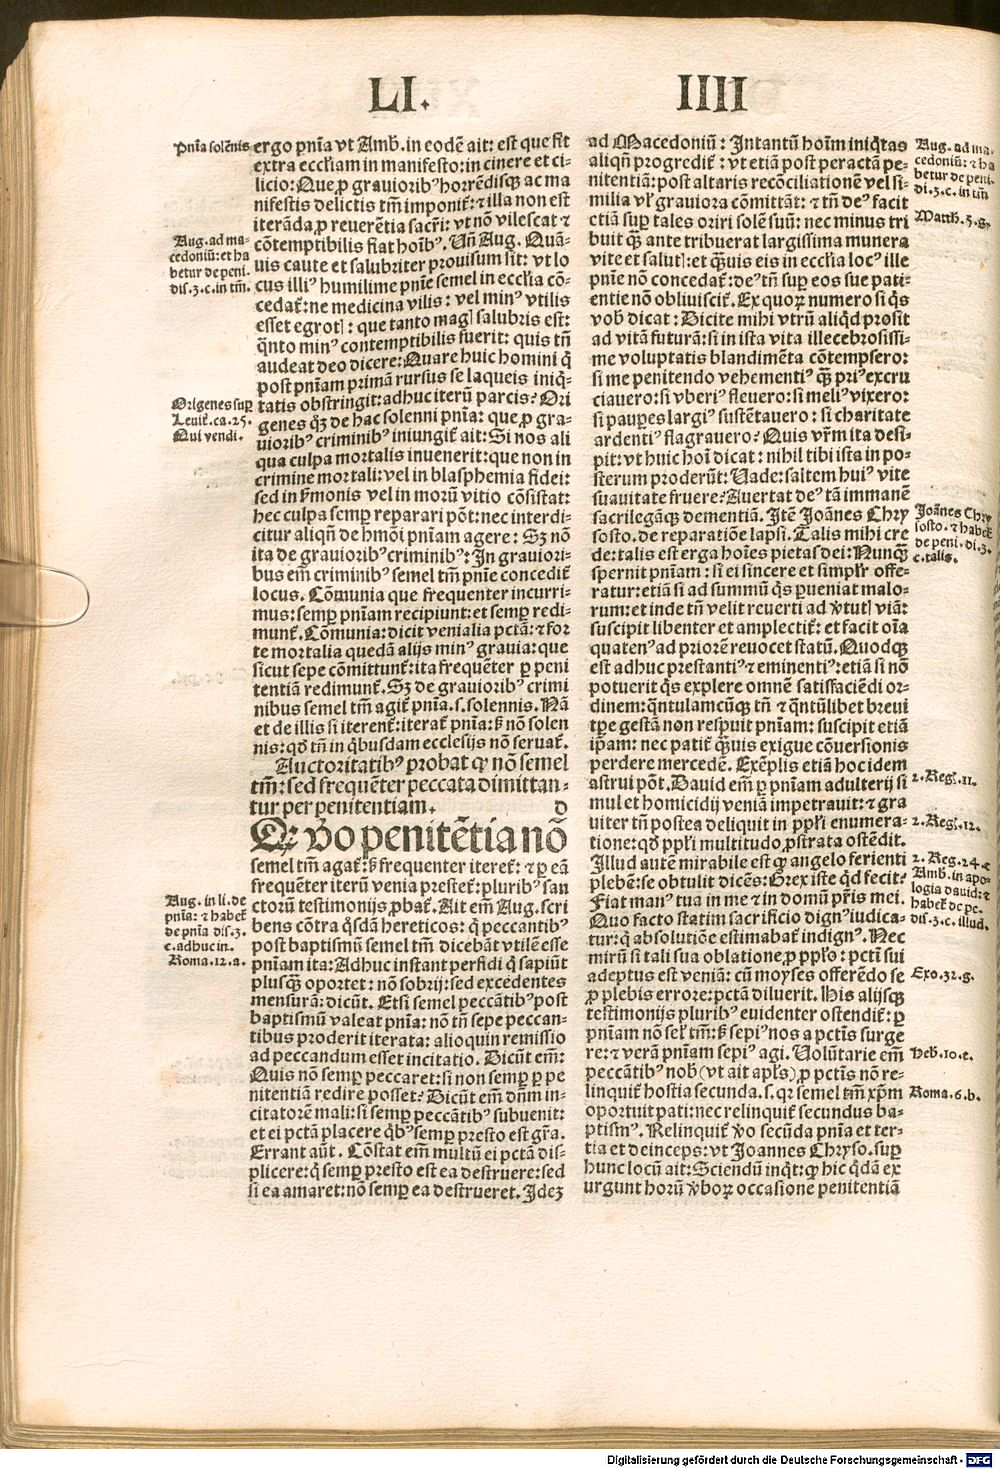 LI. IIII
Pnīa solēnis
ergo pnīa vt Amb. in eodē ait: est que fit
extra eccl'iam in manifesto: in cinere et ci-
licio: Que ꝓ grauiorib⁹ horrēdisqꝫ ac ma
nifestis delictis tm̄ imponit᷑: ⁊ illa non est
iterāda ꝓ reuerētia sacr̄i: vt nō vilescat ⁊
Aug. ad ma-
cedoniū: et ha
betur de peni.
dis. 3. c. in tm̄.
cōtemptibilis fiat hoīb⁹. Uñ Aug. Quā-
uis caute et salubriter prouisum sit: vt lo
cus illi⁹ humilime pnīe semel in eccl'ia cō-
cedat᷑: ne medicina vilis: vel min⁹ vtilis
esset egrotꝭ: que tanto magꝭ salubris est:
q̄nto min⁹ contemptibilis fuerit: quis tn̄
audeat deo dicere: Quare huic homini q̄
post pnīam primā rursus se laqueis iniq̄-
Origenes suꝑ
Leuit̄. ca. 25.
Qui vendi.
tatis obstringit: adhuc iterū parcis? Ori
genes qꝫ de hac solenni pnīa: que ꝓ gra-
uiorib⁹ criminib⁹ iniungit᷑ ait: Si nos ali
qua culpa mortalis inuenerit: que non in
crimine mortali: vel in blasphemia fidei:
sed in ẜmonis vel in morū vitio cōsistat:
hec culpa semꝑ reparari pōt: nec interdi-
citur aliqñ de hmōi pnīam agere: Sꝫ nō
ita de grauiorib⁹ criminib⁹: In grauiori-
bus em̄ criminib⁹ semel tm̄ pnīe concedit᷑
locus. Cōmunia que frequenter incurri-
mus: semꝑ pnīam recipiunt: et semꝑ redi-
munt᷑. Cōmunia: dicit venialia pctā: ⁊ for
te mortalia quedā alijs min⁹ grauia: que
sicut sepe cōmittunt᷑: ita frequēter ꝑ peni
tentiā redimunt᷑. Sꝫ de grauiorib⁹ crimi
nibus semel tm̄ agit᷑ pnīa. s. solennis. Nā
et de illis si iterent᷑: iterat᷑ pnīa: ẜ nō solen
nis: qd̄ tn̄ in q̄busdam ecclesijs nō seruat᷑.
Auctoritatib⁹ probat ꝙ nō semel
tm̄: sed frequēter peccata dimittan-
tur per penitentiam. D
Qꝫ v̄o penitētia nō
semel tm̄ agat᷑: ẜ frequenter iteret᷑: ⁊ ꝑ eā
frequēter iterū venia prestet᷑: plurib⁹ san
Aug. in li. de
pnīa: ⁊ habet᷑
de pnīa dis. 3.
c. adhuc in.
Roma. 12. a.
ctorū testimonijs ꝓbat᷑. Ait em̄ Aug. scri
bens cōtra q̄sdā hereticos: q̄ peccantib⁹
post baptismū semel tm̄ dicebāt vtilē esse
pnīam ita: Adhuc instant perfidi q̄ sapiūt
plusqꝫ oportet: nō sobrij: sed excedentes
mensurā: dicūt. Etsi semel peccātib⁹ post
baptismū valeat pnīa: nō tn̄ sepe peccan-
tibus proderit iterata: alioquin remissio
ad peccandum esset incitatio. Dicūt em̄:
Quis nō semꝑ peccaret: si non semꝑ ꝑ pe
nitentiā redire posset? Dicūt em̄ dn̄m in-
citatorē mali: si semꝑ peccātib⁹ subuenit:
et ei pctā placere q̄b⁹ semꝑ presto est gr̄a.
Errant aūt. Cōstat em̄ multū ei pctā dis-
plicere: q̄ semꝑ presto est ea destruere: sed
si ea amaret: nō semꝑ ea destrueret. Ideꝫ
ad Macedoniū: Intantū hoīm iniq̄tas
Aug. ad ma-
cedoniū: ⁊ ha
betur de peni.
di. 3. c. in tm̄
Matth. 5. g.
aliqñ progredit᷑: vt etiā post peractā pe-
nitentiā: post altaris recōciliationē vel si-
milia vl' grauiora cōmittāt: ⁊ tn̄ de⁹ facit
etiā suꝑ tales oriri solē suū: nec minus tri
buit qꝫ ante tribuerat largissima munera
vite et salutꝭ: et q̄uis eis in eccl'ia loc⁹ ille
pnīe nō concedat᷑: de⁹ tn̄ suꝑ eos sue pati-
entie nō obliuiscit᷑. Ex quoꝝ numero si q̄s
vob̄ dicat: Dicite mihi vtrū aliq̄d prosit
ad vitā futurā: si in ista vita illecebrosissi-
me voluptatis blandimēta cōtempsero:
si me penitendo vehementi⁹ qꝫ pri⁹ excru
ciauero: si vberi⁹ fleuero: si meli⁹ vixero:
si pauꝑes largi⁹ sustētauero: si charitate
ardenti⁹ flagrauero? Quis vr̄m ita desi-
pit: vt huic hoī dicat: nihil tibi ista in po-
sterum proderūt: Uade: saltem hui⁹ vite
suauitate fruere? Auertat de⁹ tā immanē
Joānes Chry
sosto. ⁊ habet᷑
de peni. di. 3.
c. talis.
sacrilegāqꝫ dementiā. Itē Joānes Chry
sosto. de reparatiōe lapsi. Talis mihi cre
de: talis est erga hoīes pietas dei: Nunqꝫ
spernit pnīam: si ei sincere et simpl'r offe-
ratur: etiā si ad summū q̄s ꝑueniat malo-
rum: et inde tn̄ velit reuerti ad v̄tutꝭ viā:
suscipit libenter et amplectit᷑: et facit oīa
quaten⁹ ad priorē reuocet statū. Quodqꝫ
est adhuc prestanti⁹ ⁊ eminenti⁹: etiā si nō
potuerit q̄s explere omnē satisfaciēdi or-
dinem: q̄ntulamcūqꝫ tn̄ ⁊ q̄ntūlibet breui
tꝑe gestā non respuit pnīam: suscipit etiā
ipam: nec patit᷑ q̄uis exigue cōuersionis
perdere mercedē. Exēplis etiā hoc idem
astrui pōt. Dauid em̄ ꝑ pnīam adulterij si
2. Reg. 11.
mul et homicidij veniā impetrauit: ⁊ gra
uiter tn̄ postea deliquit in ppl'i enumera-
2. Reg. 12.
tione: qd̄ ppl'i multitudo ꝓstrata ostēdit.
Illud autē mirabile est ꝙ angelo ferienti
2. Reg. 24. c
Amb. in apo-
logia dauid: ⁊
habet᷑ de pe.
dis. 3. c. illud.
plebē: se obtulit dicēs: Grex iste q̄d fecit?
Fiat man⁹ tua in me ⁊ in domū pr̄is mei.
Quo facto statim sacrificio dign⁹ iudica-
tur: q̄ absolutiōe estimabat᷑ indign⁹. Nec
mirū si tali sua oblatione ꝓ pplo: pctī sui
adeptus est veniā: cū moyses offerēdo se
Exo. 32. g.
ꝓ plebis errore: pctā diluerit. His alijsqꝫ
testimonijs plurib⁹ euidenter ostendit᷑: ꝑ
pnīam nō sel' tm̄: ẜ sepi⁹ nos a pctīs surge
re: ⁊ verā pnīam sepi⁹ agi. Uolūtarie em̄
Heb. 10. e.
peccātib⁹ nob̄ (vt ait apl's) ꝓ pctīs nō re-
linquit᷑ hostia secunda. s. qꝛ semel tm̄ xp̄m
Roma. 6. b.
oportuit pati: nec relinquit᷑ secundus ba-
ptism⁹. Relinquit᷑ v̄o secūda pnīa et ter-
tia et deinceps: vt Joannes Chryso. suꝑ
hunc locū ait: Sciendū inq̄t: ꝙ hic q̄dā ex
urgunt horū v̄boꝝ occasione penitentiā
Digitalisierung gefördert durch die Deutsche Forschungsgemeinschaft - DFG